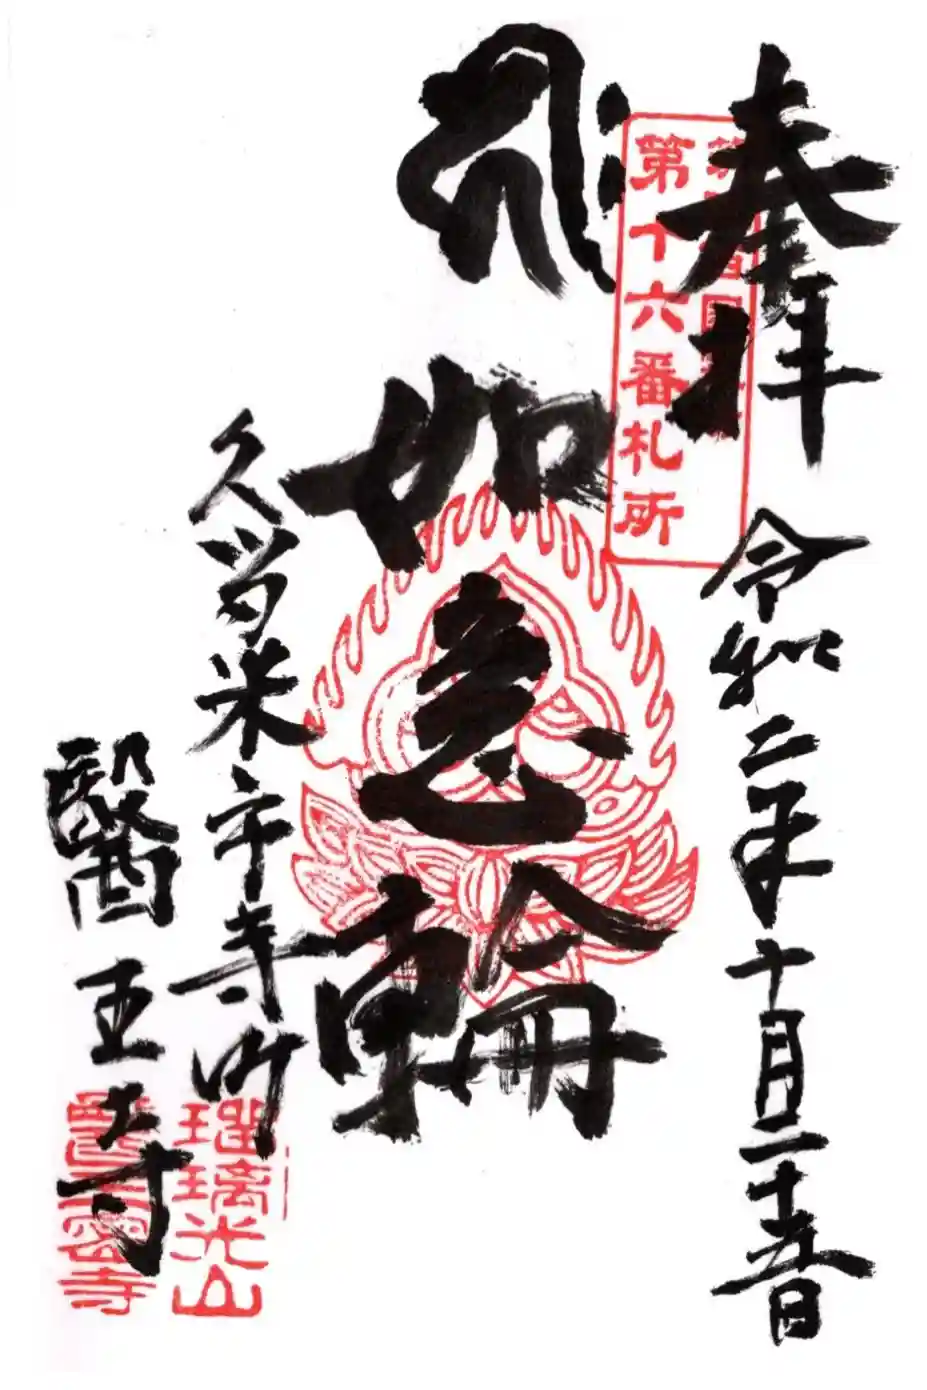 奉拝
令和二年十月二十五日
第十六番札所
如意輪
久留米市寺町
瑠璃光山
醫王寺